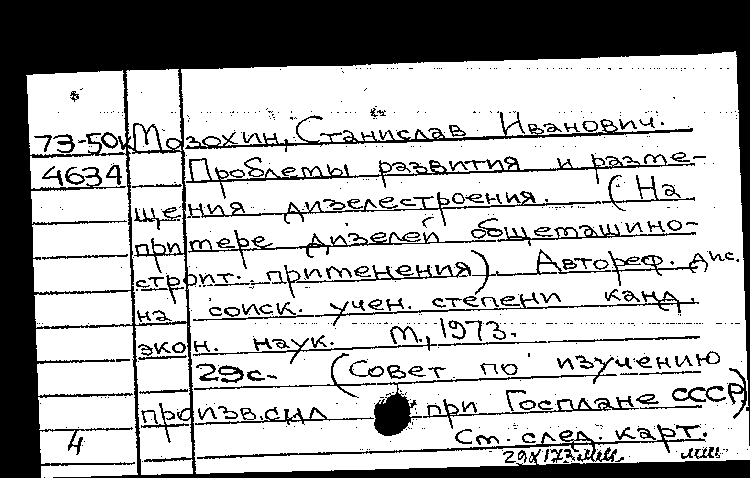 73-50к Мозохин, Станислав Иванович.
4634 Проблемы развития и разме-
щения дизелестроения. (На
примере дизелей общемашино-
строит. применения). Автореф. дис.
на соиск. учен. степени канд.
экон. наук. М., 1973.
29с. (Совет по изучению
произв. сил при Госплане СССР)
4 См. след. карт.
29Х173